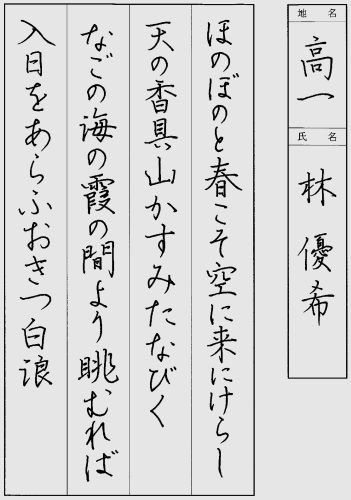 地名
高一
氏名
林 優希
ほのぼのと春こそ空に来にけらし
天の香具山かすみたなびく
なごの海の霞の間より眺むれば
入日をあらふおきつ白浪